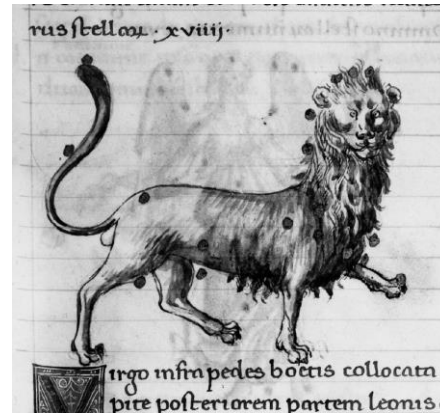 rus stellarum · xviiij ·
Virgo infra pedes boetis collocata
pite posteriorem partem leonis